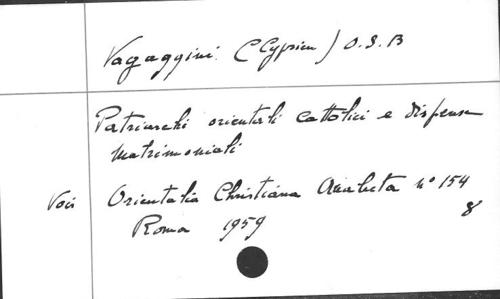 Vagaggini (Cyprien) O.S.B
Patriarchi orientali cattolici e dispense
matrimoniali
Voir Orientalia Christiana Analecta n° 154
Roma 1959 8